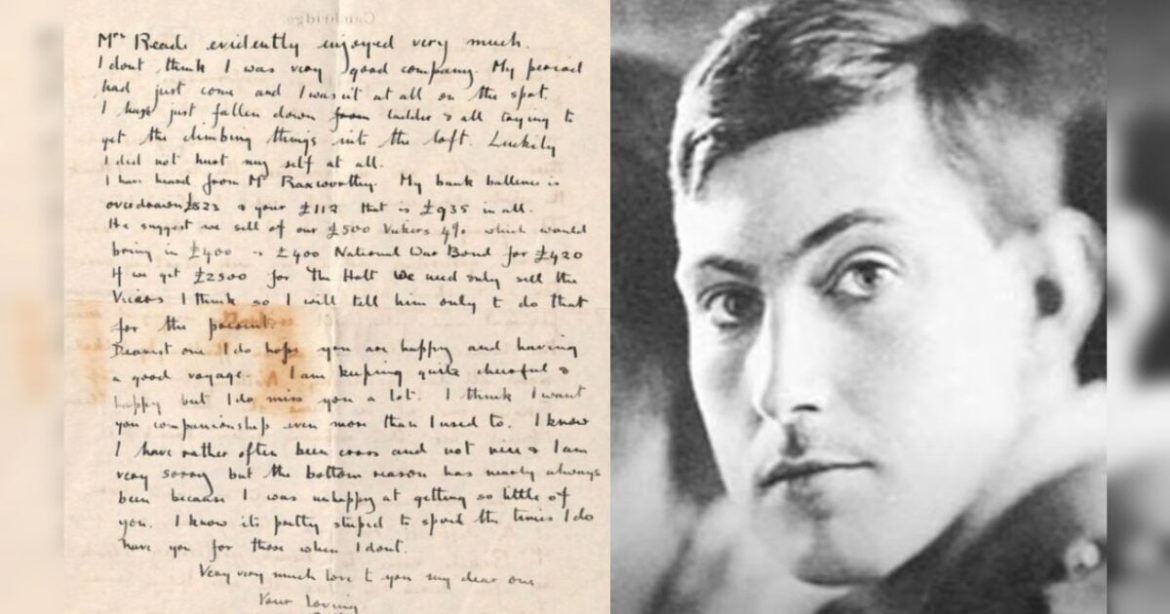 Cambridge
Mrs Reade evidently enjoyed very much.
I dont think I was very good company. My period
had just come and I wasn't at all on the spot.
I have just fallen down from ladder & all trying to
get the climbing things into the loft. Luckily
I did not hurt my self at all.
I have heard from Mr Raxworthy. My bank ballence is
overdrawn £823 & your £112 that is £935 in all.
He suggest we sell of our £500 Vickers 4% which would
bring in £400 £400 National War Bond for £420
If we get £2500 for The Holt we need only sell the
Vickers I think so I will tell him only to do that
for the present.
Dearest one I do hope you are happy and having
a good voyage. I am keeping quite cheerful &
happy but I do miss you a lot. I think I want
you companionship even more than I used to. I know
I have rather often been cross and not nice & I am
very sorry but the bottom reason has nearly always
been because I was unhappy at getting so little of
you. I know its pretty stupid to spoil the times I do
have you for those when I dont.
Very very much love to you my dear one
Your loving